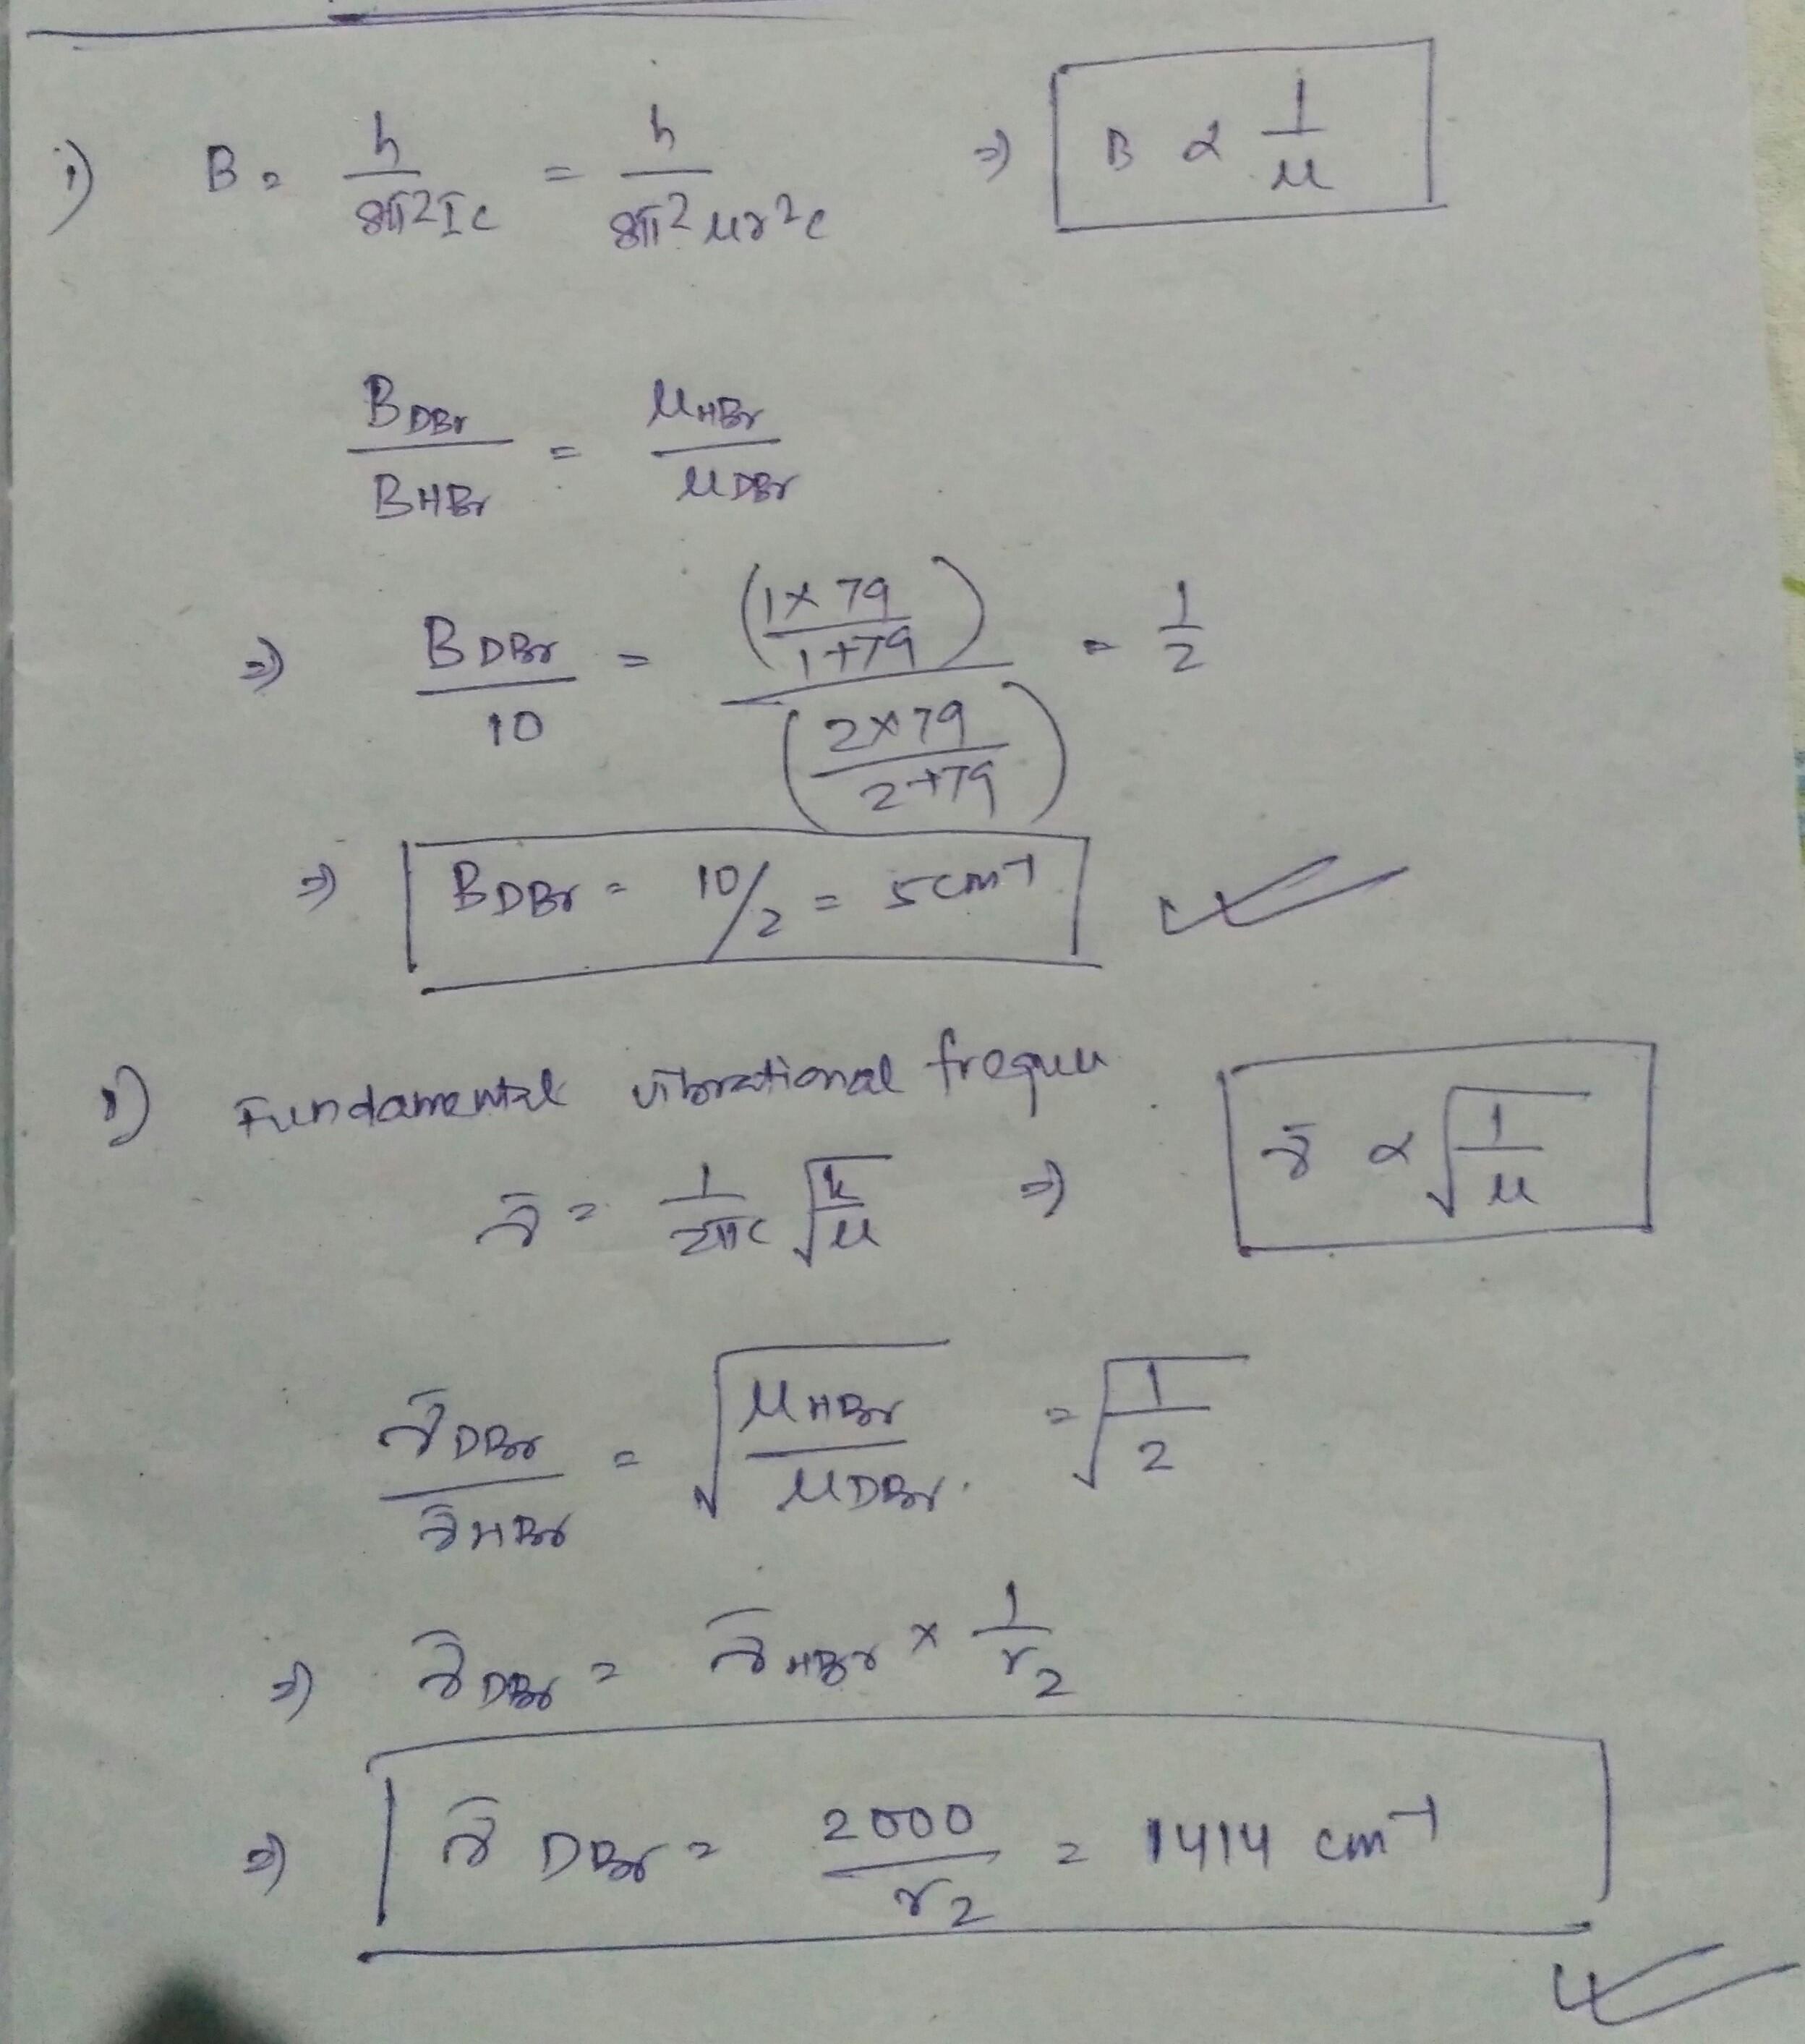 i) B = h / 8π²Ic = h / 8π²μr²c ⇒ B α 1/μ
B_DBr / B_HBr = μ_HBr / μ_DBr
⇒ B_DBr / 10 = (1×79 / 1+79) / (2×79 / 2+79) = 1/2
⇒ B_DBr = 10/2 = 5 cm⁻¹
ii) Fundamental vibrational frequ
ν̄ = 1/2πc √(k/μ) ⇒ ν̄ α √(1/μ)
ν̄_DBr / ν̄_HBr = √(μ_HBr / μ_DBr) = √(1/2)
⇒ ν̄_DBr = ν̄_HBr × 1/√2
⇒ ν̄_DBr = 2000/√2 = 1414 cm⁻¹